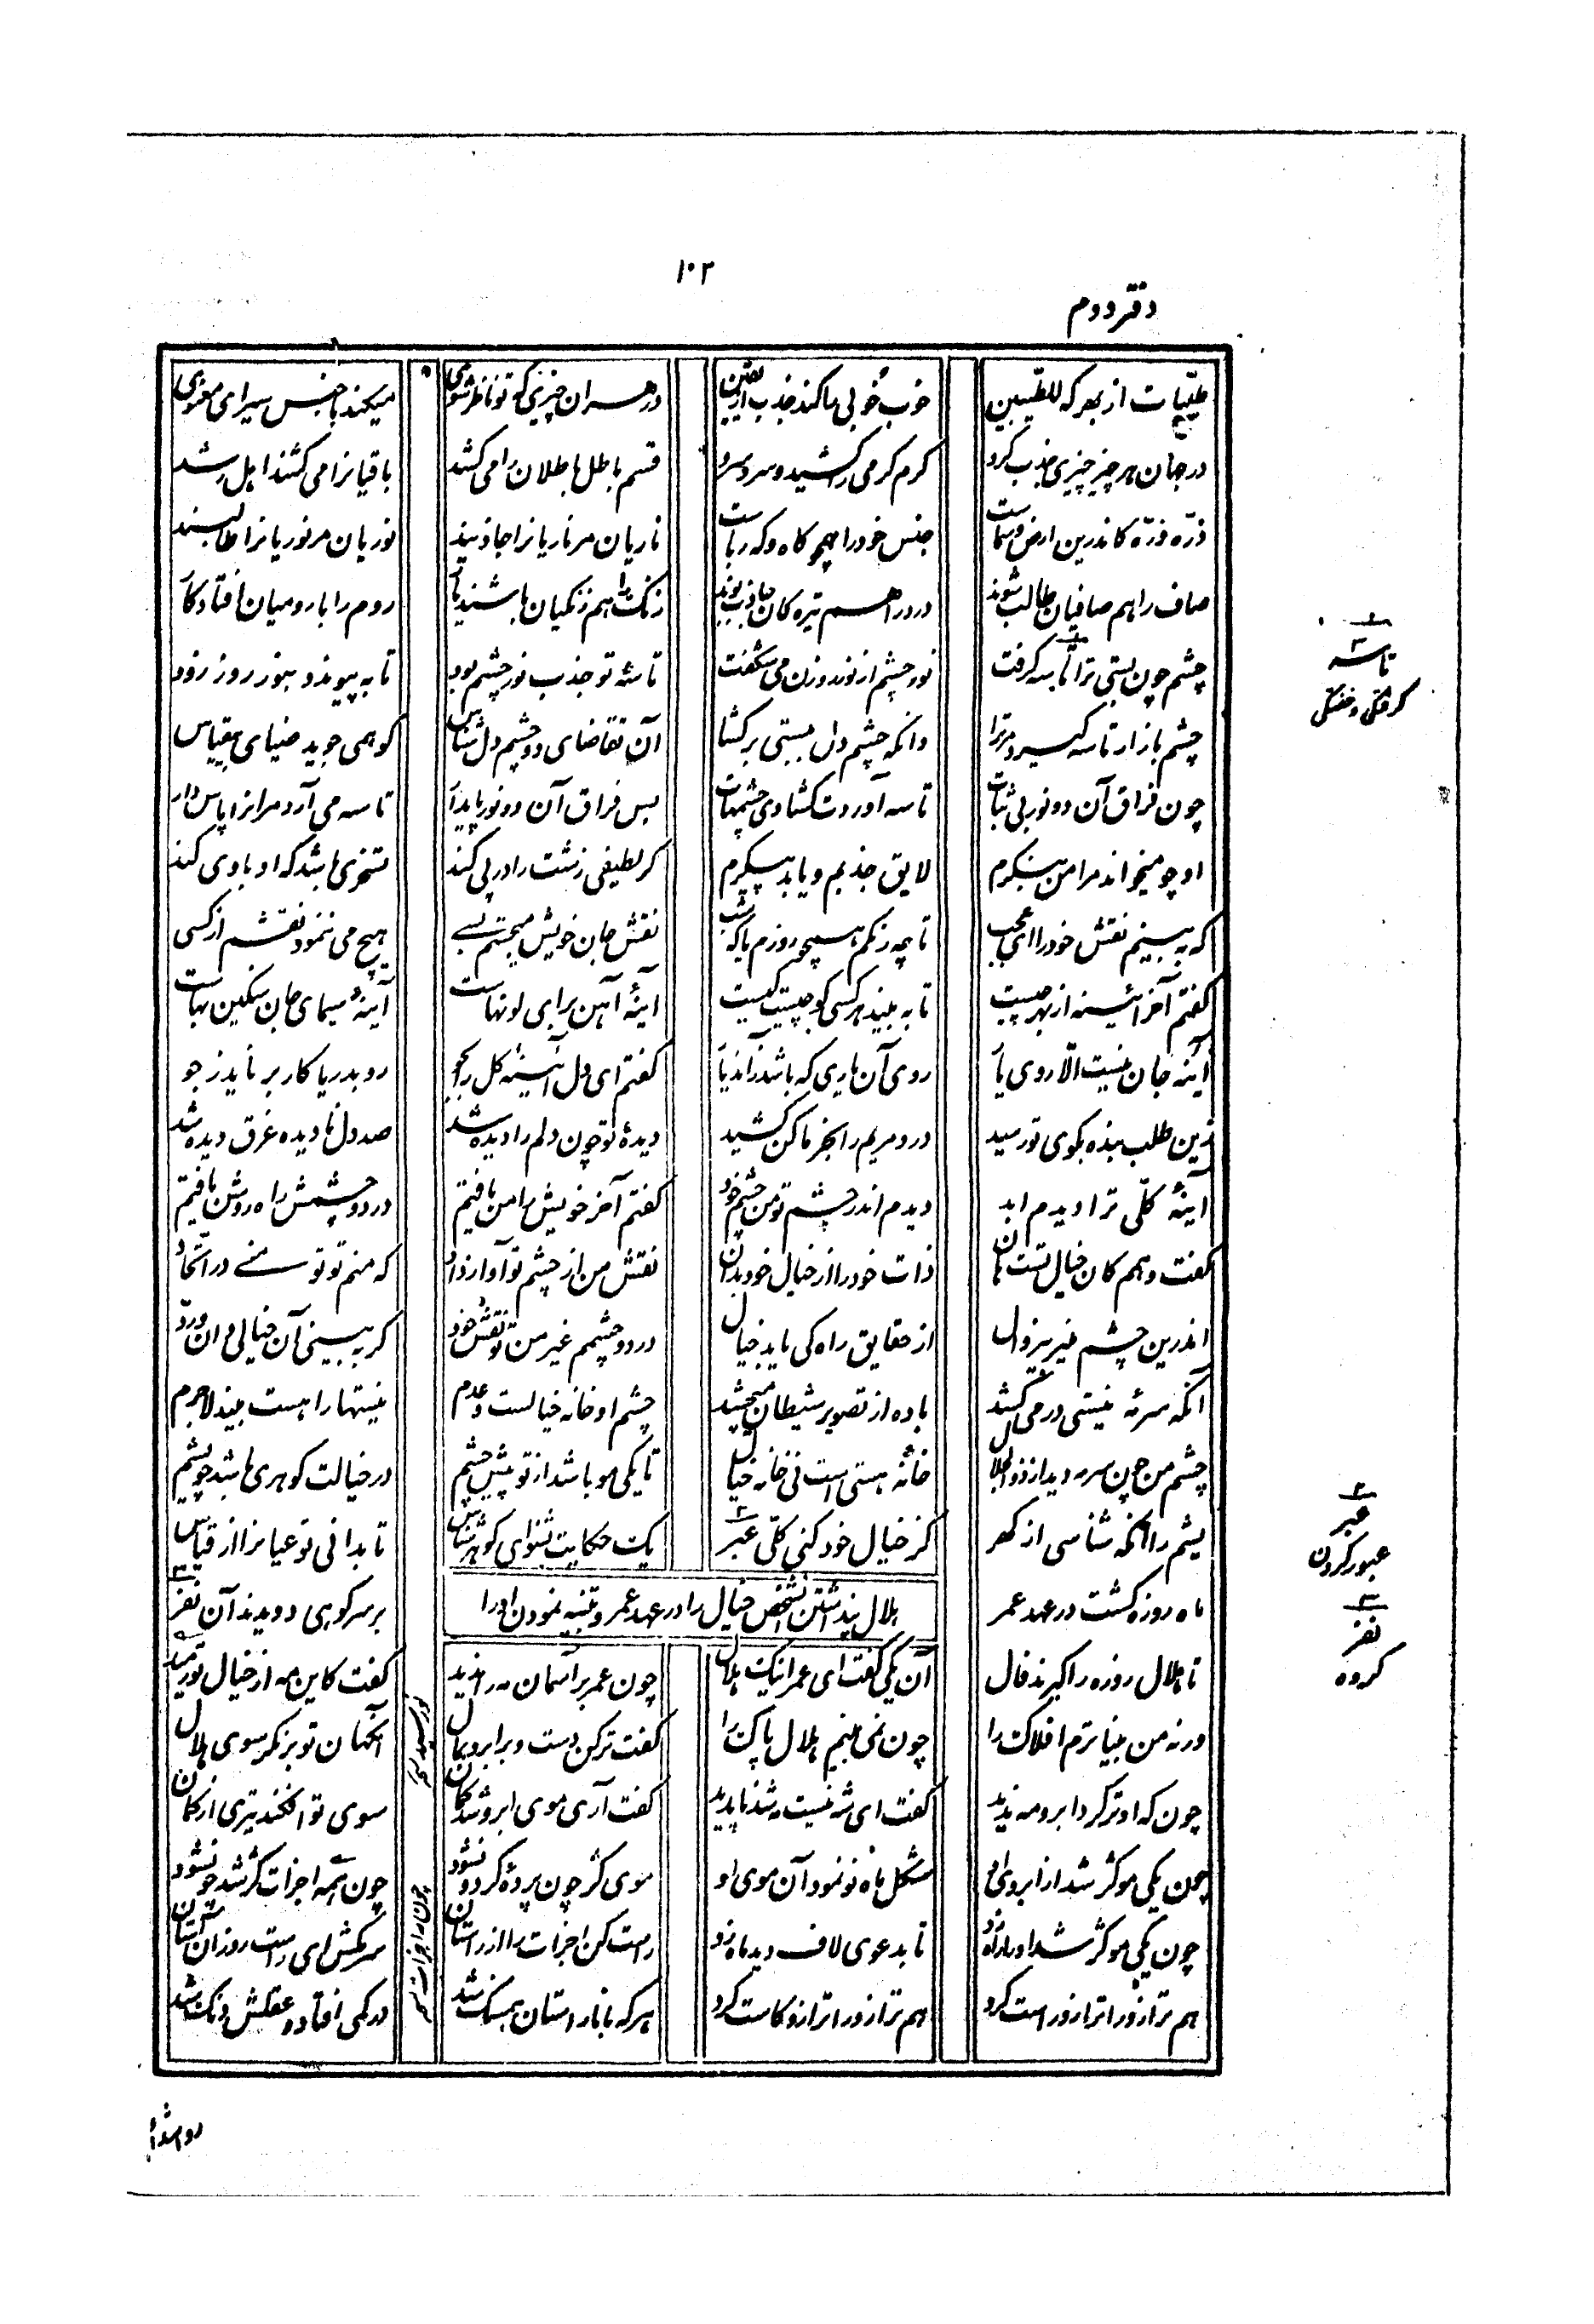 ۱۰۲
دفتر دوم
طیّبات از بهر که للطّیبین خوب خوبی را کند جذب از یقین در هر آن چیزی که تو ناظر شوی میکند با جنس سیر ای معنوی
در جهان هر چیز چیزی جذب کرد گرم گرمی را کشید و سرد سرد قسم باطل باطلان را می کشد باقیانرا می کشند اهل رشد
ذرّه ذرّه کاندرین ارض و سماست جنس خود را همچو کاه و کهرباست ناریان مر ناریانرا جاذبند نوریان مر نوریانرا طالبند
صاف را هم صافیان طالب شوند درد را هم تیره کان جاذب بوند زنگ را هم زنگیان باشند یار روم را با رومیان افتاد کار
چشم چون بستی ترا تاسه گرفت نور چشم از نور روزن می شکفت تاسهٔ تو جذب نور چشم بود تا به پیوندد بنور روز زود
چشم باز ار تاسه گیرد مر ترا دانکه چشم دل ببستی بر گشا آن تقاضای دو چشم دل شناس کو همی جوید ضیای بیقیاس
چون فراق آن دو نور بی ثبات تاسه آوردت گشادی چشمهات پس فراق آن دو نور پایدار تاسه می آرد مر انرا پاس دار
او چو میخواند مرا من بنگرم لایق جذبم و یا بد پیکرم گر لطیفی زشت را در پی کند تسخری باشد که او با وی کند
که به بینم نقش خود را ای عجب تا چه رنگم همچو روزم یا که شب نقش جان خویش میجستم بسی هیچ می ننمود نقشم از کسی
گفتم آخر آینه از بهر چیست تا به بیند هر کسی کو چیست کیست آینهٔ آهن برای لونهاست آینهٔ سیمای جان سنگین بهاست
آینهٔ جان نیست الّا روی یار روی آن یاری که باشد زان دیار گفتم ای دل آینهٔ کل را بجو رو بدریا کار بر ناید ز جو
زین طلب بنده بکوی تو رسید درد مریم را بخرما بن کشید دیدهٔ تو چون دلم را دیده شد صد دل نادیده غرق دیده شد
آینهٔ کلّی ترا دیدم ابد دیدم اندر چشم تو من چشم خود گفتم آخر خویش را من یافتم در دو چشمش راه روشن یافتم
گفت وهمم کان خیال تست هان ذات خود را از خیال خود بدان نقش من از چشم تو آواز داد که منم تو تو منی در اتّحاد
اندرین چشم منیر بیزوال از حقایق راه کی یابد خیال در دو چشم غیر من تو نقش خود گر به بینی آن خیالی دان و رد
آنکه سرمهٔ نیستی در می کشد باده از تصویر شیطان میچشد چشم او خانه خیالست و عدم نیستها را هست بیند لاجرم
چشم من چون سرمه دید از ذوالجلال خانهٔ هستی است نی خانه خیال تا یکی مو باشد از تو پیش چشم در خیالت گوهری باشد چو یشم
یشم را آنکه شناسی از گهر کز خیال خود کنی کلّی عبر یک حکایت بشنو ای گوهر شناس تا بدانی تو عیانرا از قیاس
هلال پنداشتن آن شخص خیال را در عهد عمر و تنبیه نمودن او را
ماه روزه گشت در عهد عمر بر سر کوهی دویدند آن نفر
تا هلال روزه را گیرند فال آن یکی گفت ای عمر اینک هلال چون عمر بر آسمان مه را ندید گفت کاین مه از خیال تو رمید
ورنه من بیناترم افلاک را چون نمی بینم هلال پاک را گفت تر کن دست و بر ابرو بمال آنگهان تو بر نگر سوی هلال
چون که او تر کرد ابرو مه ندید گفت ای شه نیست مه شد ناپدید گفت آری موی ابرو شد کمان سوی تو افکند تیری از کمان
چون یکی مو کژ شد از ابروی او شکل ماه نو نمود آن موی او موی کژ چون پردهٔ گردون شود چون همه اجزات کژ شد چون شود
چون یکی مو کژ شد او را راه زد تا بدعوی لاف دید ماه زد راست کن اجزات را از راستان سر مکش ای راست رو زان آستان
هم ترازو را ترازو راست کرد هم ترازو را ترازو کاست کرد هر که با ناراستان همسنگ شد در کمی افتاد و عقلش دنگ شد
۱
تاسه
گرفتگی و خفگی
۲
عبر
عبور کردن
۳
نفر
گروه
رو اشداء